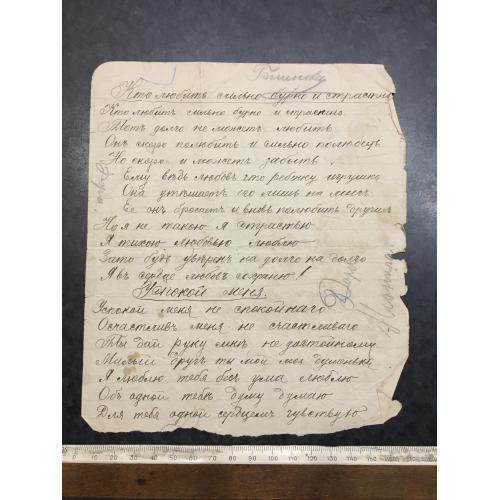 Кто любитъ сильно бурно и страстно
Кто любитъ сильно бурно и страстно
Тотъ долго не можетъ любить
Онъ скоро полюбитъ и сильно полюбитъ
Но скоро и можетъ забыть.
Ему ведь любовь что ребенку игрушка
Она утѣшаетъ его лишь на мигъ
Ее онъ бросаетъ и вновь полюбитъ другихъ
Но я не такою я страстью
Я тихою любовью люблю
Зато будь увѣренъ на долго на долго
Я въ сердце любовь сохраню!
Успокой меня.
Успокой меня не спокойнаго
Осчастливь меня не счастливаго
Ты дай руку мнѣ не достойному
Милый другъ ты мой моя душенька
Я люблю тебя безъ ума люблю
Объ одной тебѣ думу думаю
Для тебя одной сердцемъ чувствую
0 10 20 30 40 50 60 70 80 90 100 110 120 130 140 150 160 170 180 190 200